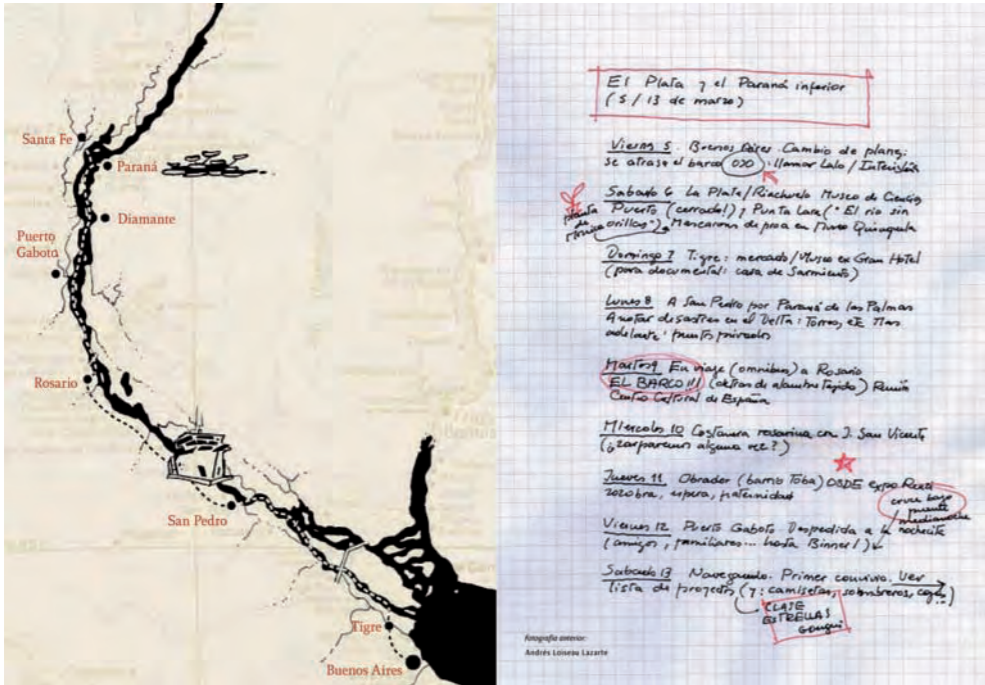 Santa Fe
Paraná
Diamante
Puerto
Gaboto
Rosario
San Pedro
Tigre
Buenos Aires
El Plata y el Paraná inferior
(5/13 de marzo)
Viernes 5. Buenos Aires. Cambio de planes;
se atrasa el barco OJO. llamar Lalo /
Sabado 6 La Plata/Riachuelo Museo de Ciencias
Puerto (cerrado!) y Punta Lara ("El río sin
orillas") Mascarones de proa en Museo Quinquela
planta
de
Mónica
Domingo 7 Tigre: mercado/Museo ex Gran Hotel
(para documental: casa de Sarmiento)
Lunes 8 A San Pedro por Paraná de las Palmas
Anotar desastres en el Delta: Torres, etc Mas
adelante: puertos privados
Martes 9 En viaje (omnibus) a Rosario
EL BARCO!!! (detras de alambre tejido) Reunión
Centro Cultural de España
Miercoles 10 Costanera rosarina con J. San Vicente
(¿zarparemos alguna vez?)
Jueves 11 Obrador (barrio Toba) OSDE expo
zozobra, espera, paternidad
cruce bajo
puente
medianoche
Viernes 12 Puerto Gaboto Despedida a la nochecita
(amigos, familiares... hasta Binner!)
Sabado 13 Navegando. Primer convivio. Ver
lista de proyectos (y: camisetas, sombreros, cajas...)
CLASE
ESTRELLAS
Fotografía anterior:
Andrés Loiseau Lazarte